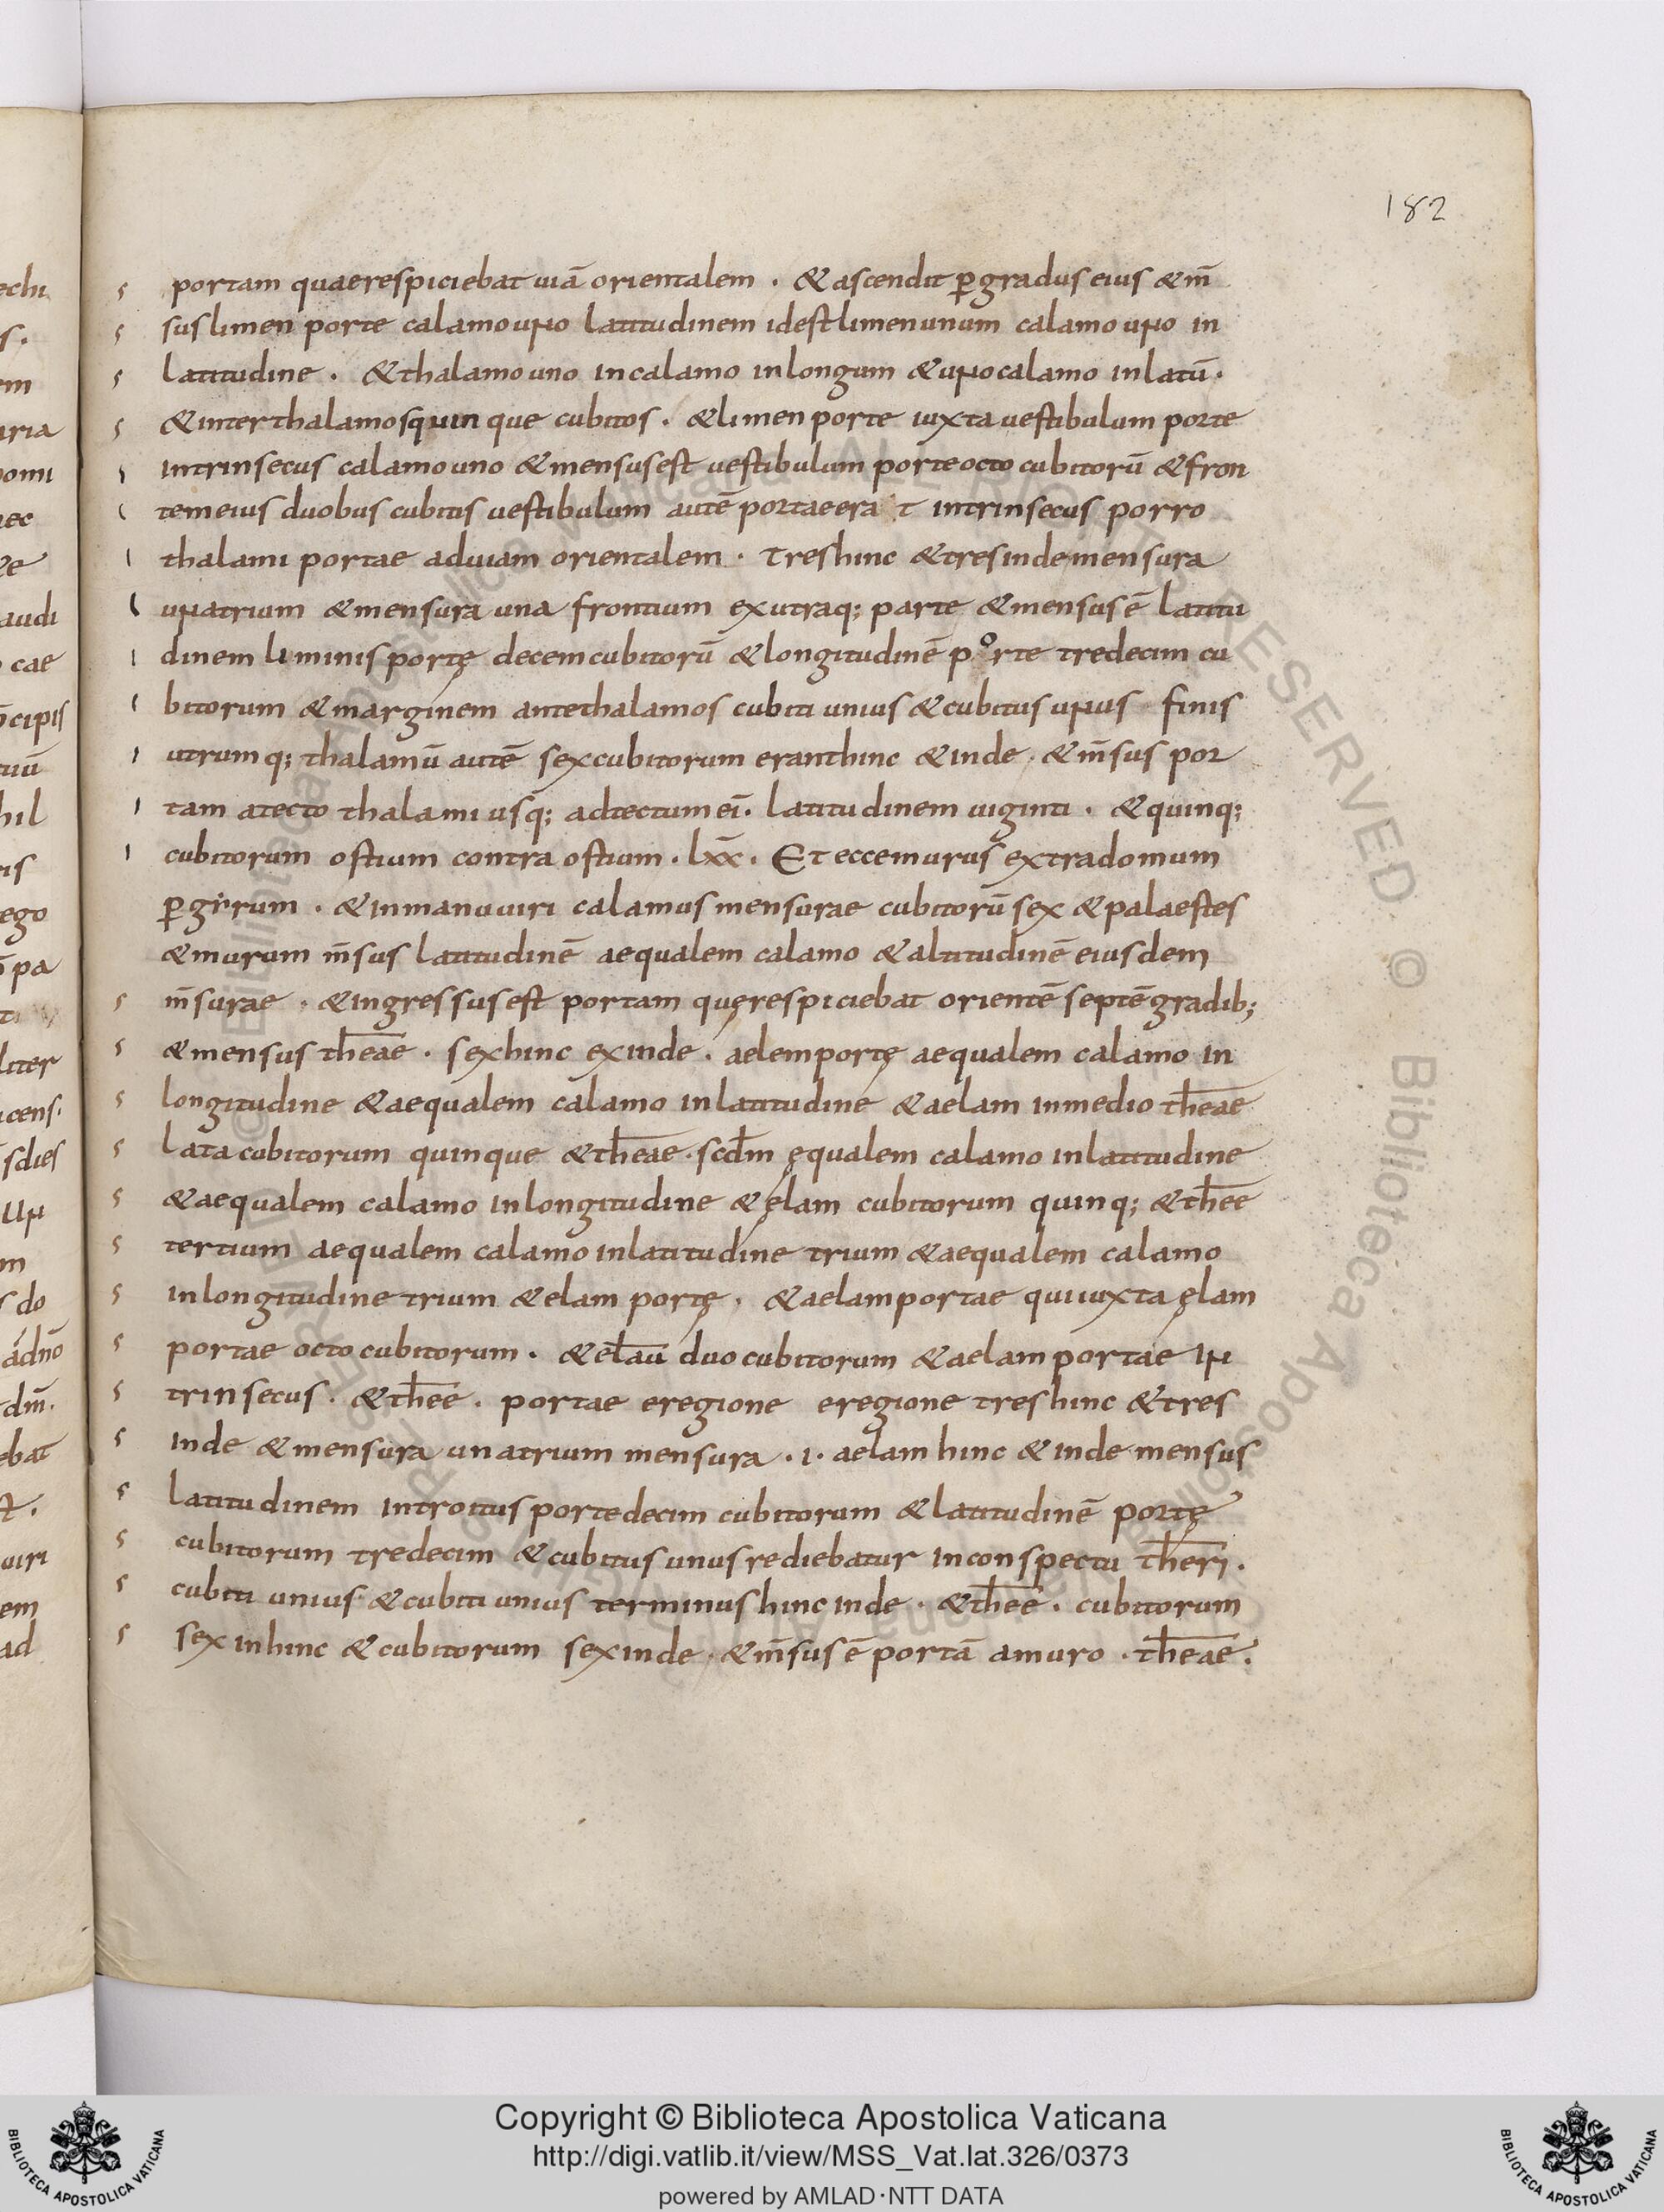 182
portam quaerespiciebat uiā orientalem . & ascendit ꝑ gradus eius & m̄
sus limen porte calamo uno latitudinem idest limen unum calamo uno in
latitudine . & thalamo uno incalamo inlongum & uno calamo inlatū .
& inter thalamos quinque cubitos . & limen porte iuxta uestibulum porte
intrinsecus calamo uno & mensus est uestibulum porte octo cubitorū & fron
tem eius duobus cubitis uestibulum autē portae erat intrinsecus porro
thalami portae aduiam orientalem . tres hinc & tres inde mensura
una trium & mensura una frontium ex utraq; parte & mensus ē latitu
dinem liminis portę decem cubitorū & longitudinē porte tredecim cu
bitorum & marginem ante thalamos cubiti unius & cubitus unus finis
utrumq; thalamū autē sex cubitorum erant hinc & inde . & m̄sus por
tam atecto thalami usq; adtectum eī . latitudinem uiginti . & quinq;
cubitorum ostium contra ostium . lxx . Et ecce murus extra domum
ꝑ girum . & inmanu uiri calamus mensurae cubitorū sex & palaestes
& murum m̄sus latitudinē aequalem calamo & altitudinē eiusdem
m̄surae . & ingressus est portam quę respiciebat orientē septē gradib;
& mensus theae . sex hinc ex inde . aelem portę aequalem calamo in
longitudine & aequalem calamo inlatitudine & aelam inmedio theae
lata cubitorum quinque & theae . scdm ęqualem calamo inlatitudine
& aequalem calamo inlongitudine & ęlam cubitorum quinq; & thee
tertium aequalem calamo inlatitudine trium & aequalem calamo
inlongitudine trium & elam portę . & aelam portae qui iuxta ęlam
portae octo cubitorum . & elau duo cubitorum & aelam portae in
trinsecus . & thee . portae eregione eregione tres hinc & tres
inde & mensura una trium mensura . i . aelam hinc & inde mensus
latitudinem introitus porte decim cubitorum & latitudinē portę
cubitorum tredecim & cubitus unus rediebatur inconspectu theri .
cubiti unius & cubiti unius terminus hinc inde . & thee . cubitorum
sex inhinc & cubitorum sex inde . & m̄sus ē portā amuro . theae .
Copyright © Biblioteca Apostolica Vaticana
http://digi.vatlib.it/view/MSS_Vat.lat.326/0373
powered by AMLAD·NTT DATA
BIBLIOTECA APOSTOLICA VATICANA
BIBLIOTECA APOSTOLICA VATICANA